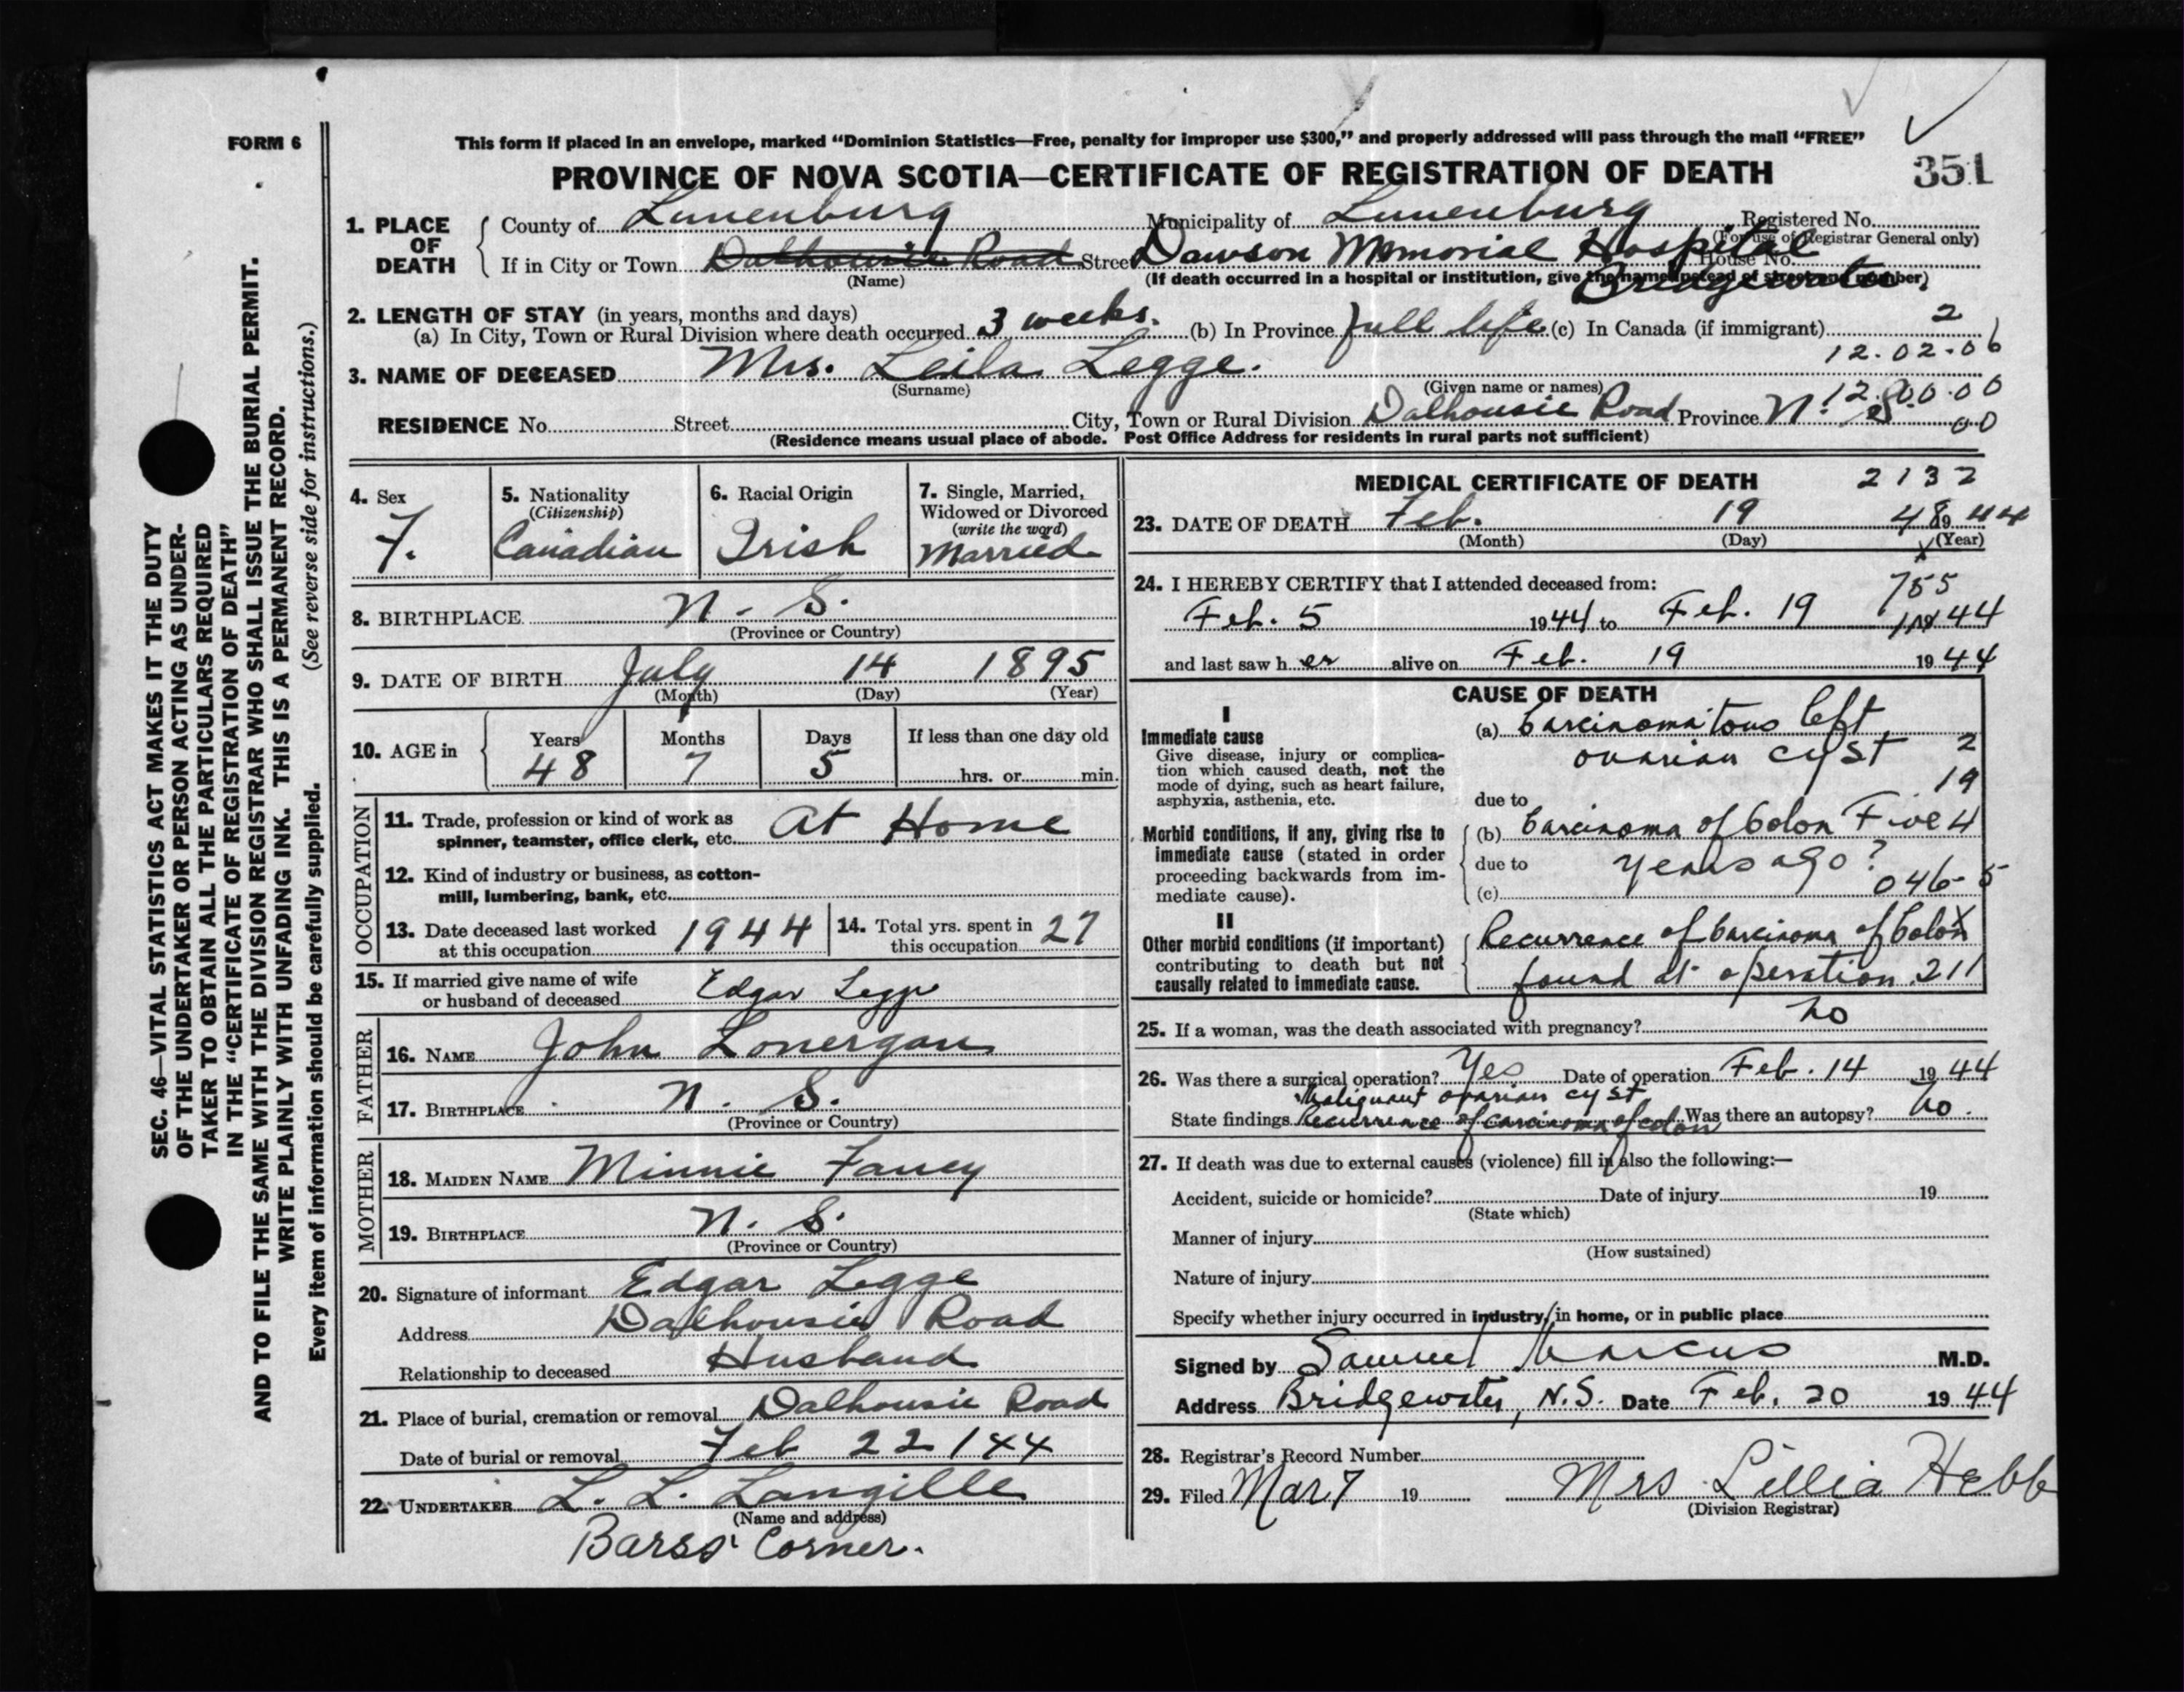 FORM 6
This form if placed in an envelope, marked “Dominion Statistics—Free, penalty for improper use $300,” and properly addressed will pass through the mail “FREE”
PROVINCE OF NOVA SCOTIA—CERTIFICATE OF REGISTRATION OF DEATH
351
1. PLACE OF DEATH
County of Lunenburg Municipality of Lunenburg Registered No.
(For use of Registrar General only)
If in City or Town Dalhousie Road Street Dawson Memorial Hospital House No.
(Name) (If death occurred in a hospital or institution, give the name instead of street and number)
Bridgewater
2. LENGTH OF STAY (in years, months and days)
(a) In City, Town or Rural Division where death occurred 3 weeks. (b) In Province full life (c) In Canada (if immigrant)
2
12.02.06
3. NAME OF DECEASED Mrs. Leila Legge.
(Surname) (Given name or names)
12.00.00
RESIDENCE No. Street City, Town or Rural Division Dalhousie Road Province N. S.
00
(Residence means usual place of abode. Post Office Address for residents in rural parts not sufficient)
4. Sex
F.
5. Nationality
(Citizenship)
Canadian
6. Racial Origin
Irish
7. Single, Married,
Widowed or Divorced
(write the word)
Married
8. BIRTHPLACE N. S.
(Province or Country)
9. DATE OF BIRTH July 14 1895
(Month) (Day) (Year)
10. AGE in
Years Months Days If less than one day old
48 7 5 hrs. or min.
OCCUPATION
11. Trade, profession or kind of work as
spinner, teamster, office clerk, etc. At Home
12. Kind of industry or business, as cotton-
mill, lumbering, bank, etc.
13. Date deceased last worked
at this occupation 1944
14. Total yrs. spent in
this occupation 27
15. If married give name of wife
or husband of deceased Edgar Legge
FATHER
16. NAME John Lonergan
17. BIRTHPLACE N. S.
(Province or Country)
MOTHER
18. MAIDEN NAME Minnie Fancy
19. BIRTHPLACE N. S.
(Province or Country)
20. Signature of informant Edgar Legge
Address Dalhousie Road
Relationship to deceased Husband
21. Place of burial, cremation or removal Dalhousie Road
Date of burial or removal Feb 22 / 44
22. UNDERTAKER L. L. Langille
(Name and address)
Barss' Corner.
MEDICAL CERTIFICATE OF DEATH
2132
23. DATE OF DEATH Feb. 19 19 44
48
(Month) (Day) (Year)
24. I HEREBY CERTIFY that I attended deceased from:
755
Feb. 5 1944 to Feb. 19 1944
and last saw her alive on Feb. 19 1944
CAUSE OF DEATH
I
Immediate cause
Give disease, injury or complica-
tion which caused death, not the
mode of dying, such as heart failure,
asphyxia, asthenia, etc.
(a) Carcinomatous left
ovarian cyst
2
19
4
due to
Morbid conditions, if any, giving rise to
immediate cause (stated in order
proceeding backwards from im-
mediate cause).
(b) Carcinoma of Colon Five
due to years ago?
(c)
046-5
II
Other morbid conditions (if important)
contributing to death but not
causally related to immediate cause.
Recurrence of Carcinoma of Colon
found at operation. 211
25. If a woman, was the death associated with pregnancy? no
26. Was there a surgical operation? Yes Date of operation Feb. 14 1944
Malignant ovarian cyst
State findings Recurrence of carcinoma of colon Was there an autopsy? No.
27. If death was due to external causes (violence) fill in also the following:—
Accident, suicide or homicide? Date of injury 19
(State which)
Manner of injury
(How sustained)
Nature of injury
Specify whether injury occurred in industry, in home, or in public place
Signed by Samuel Marcus M.D.
Address Bridgewater, N.S. Date Feb. 20 1944
28. Registrar's Record Number
29. Filed Mar 7 19 Mrs Lillia Hebb
(Division Registrar)
SEC. 46—VITAL STATISTICS ACT MAKES IT THE DUTY
OF THE UNDERTAKER OR PERSON ACTING AS UNDER-
TAKER TO OBTAIN ALL THE PARTICULARS REQUIRED
IN THE “CERTIFICATE OF REGISTRATION OF DEATH”
AND TO FILE THE SAME WITH THE DIVISION REGISTRAR WHO SHALL ISSUE THE BURIAL PERMIT.
WRITE PLAINLY WITH UNFADING INK. THIS IS A PERMANENT RECORD.
Every item of information should be carefully supplied. (See reverse side for instructions.)